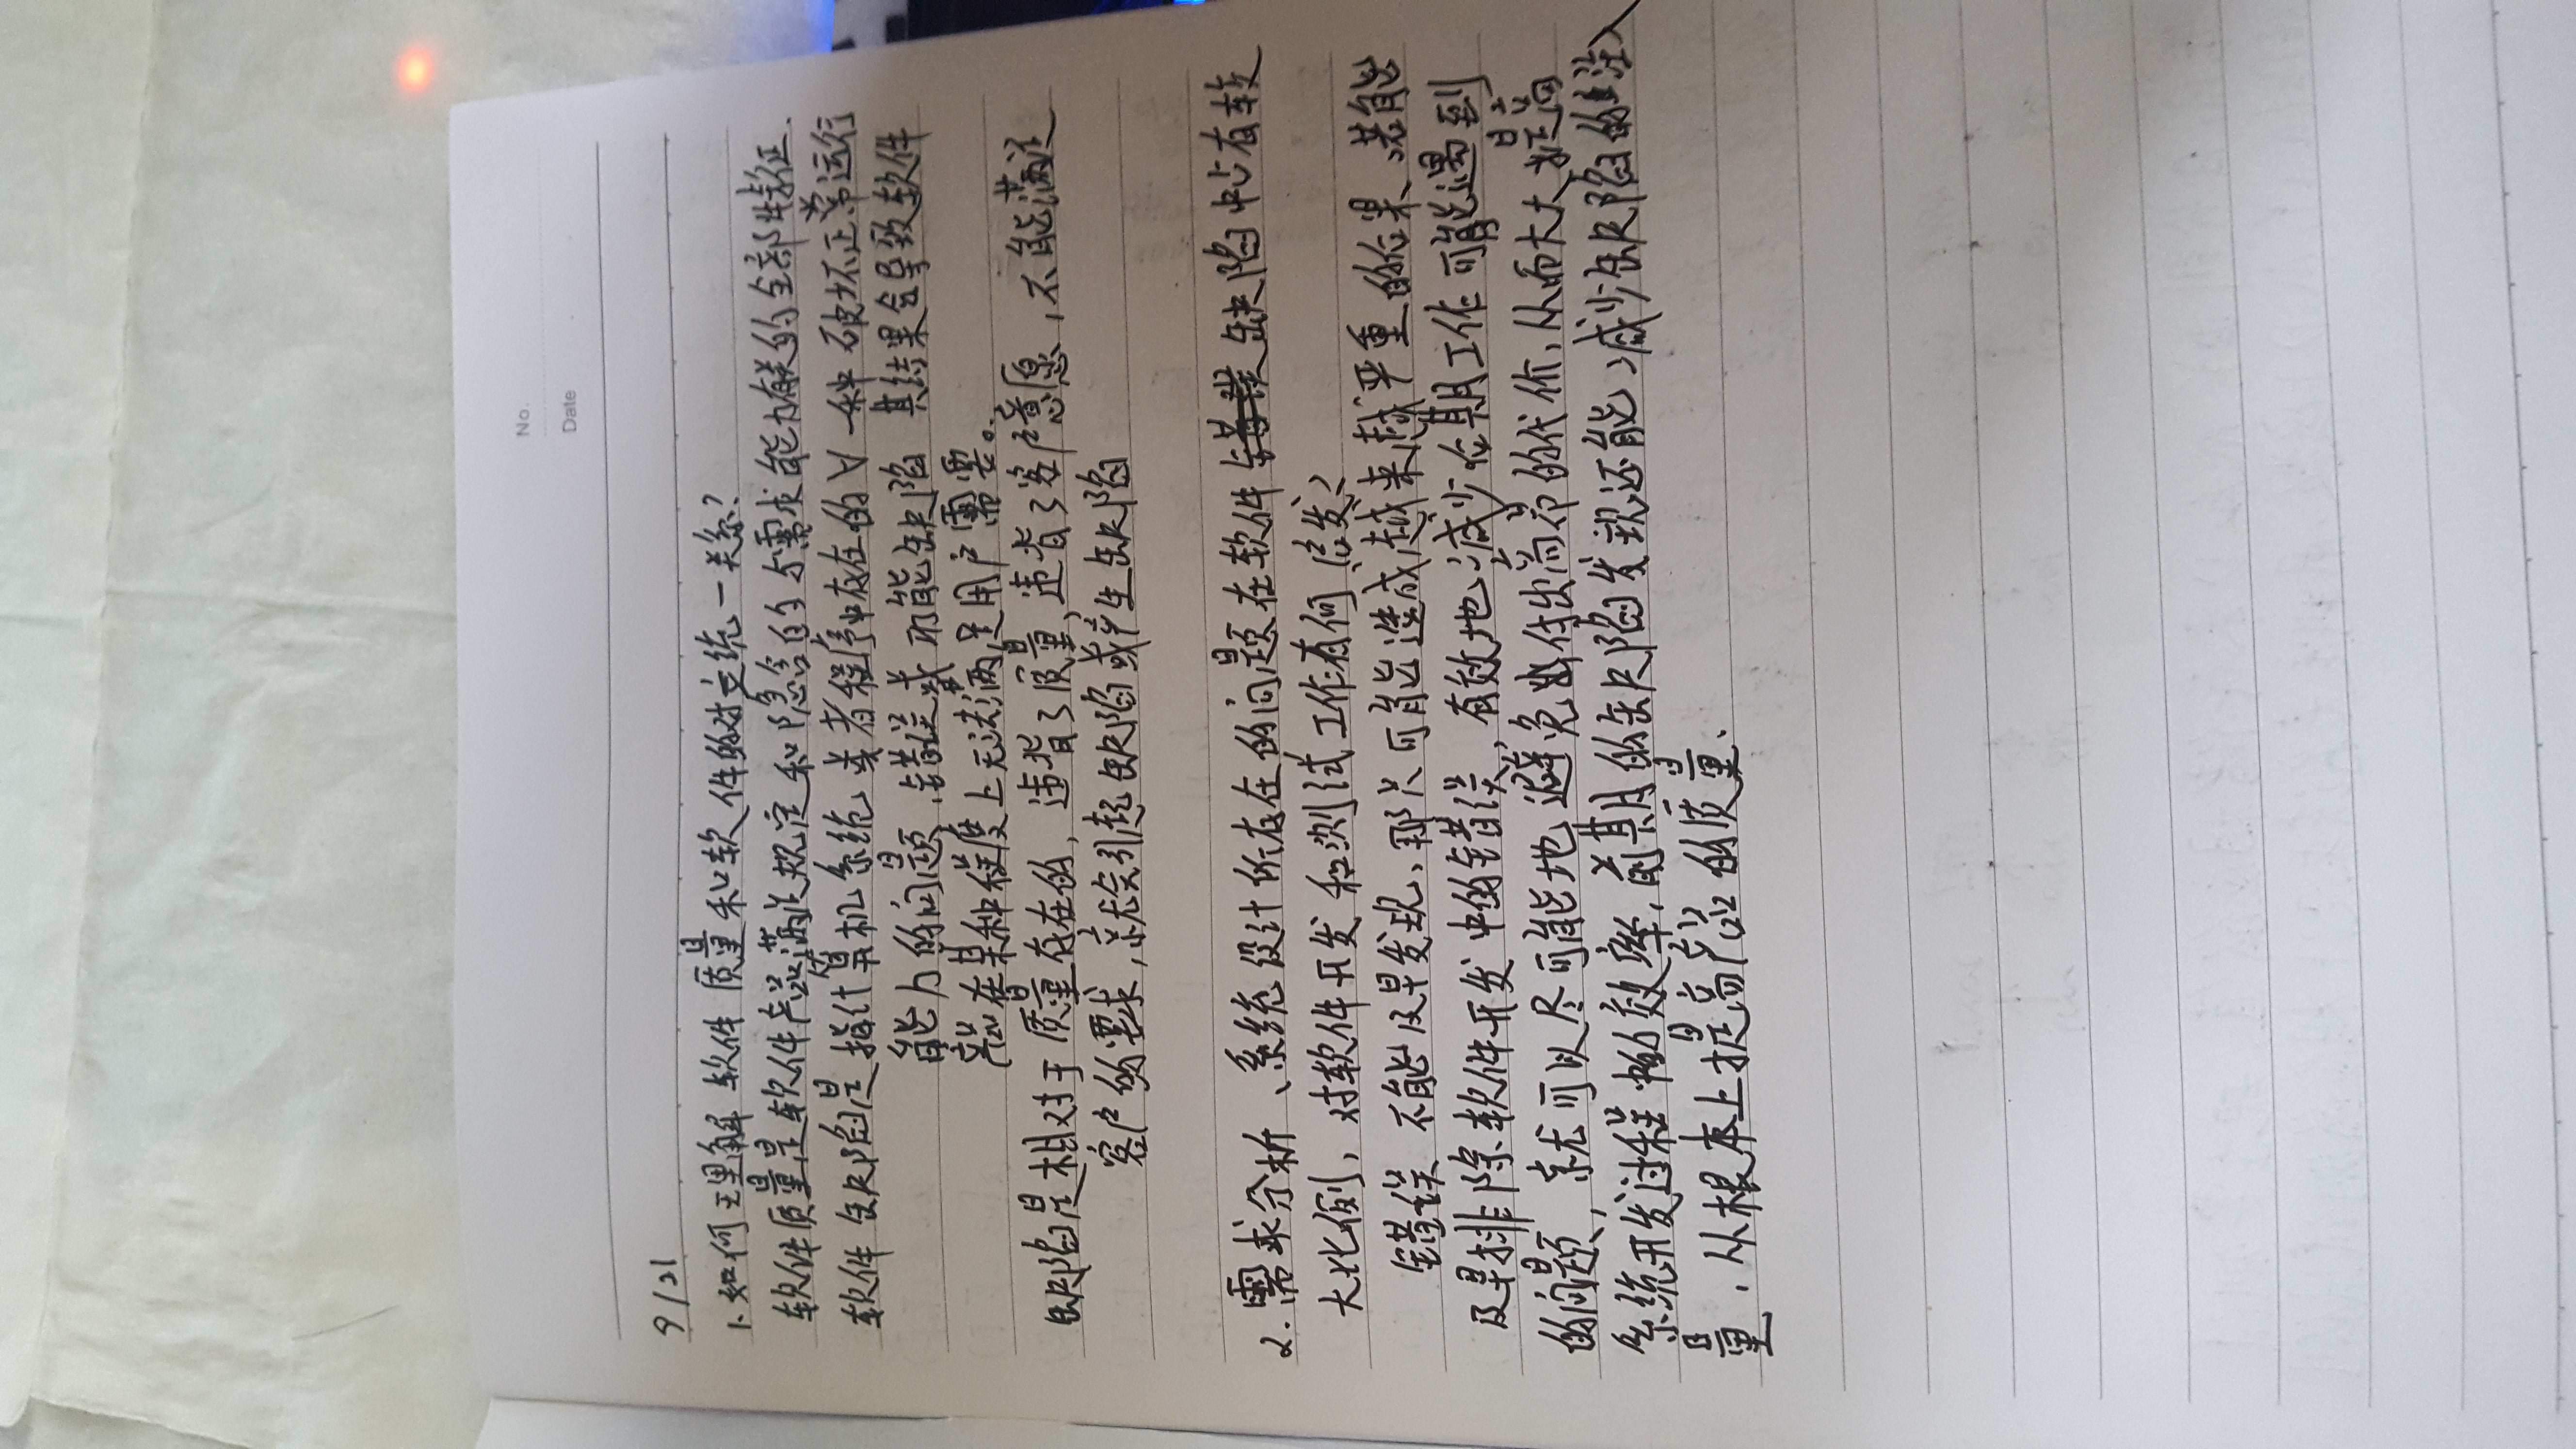 No.
Date
9/21
1.如何理解软件质量和软件的对立统一关系?
软件质量是软件产品满足规定和隐含的与需求能力有关的全部特征.
软件缺陷是指计算机系统或者程序中存在的∀一种破坏正常运行
能力的问题、错误或功能缺陷 其结果会导致软件
产品在某种程度上无法满足用户需要。
缺陷是相对于质量存在的,违背了质量,违背了客户意愿,不能满足
客户的要求,就会引起缺陷或产生缺陷
2.需求分析、系统设计所存在的问题在软件缺陷中占有较
大比例,对软件开发和测试工作有何启发?
错误不能及早发现,那只可能造成越来越严重的后果、若能
及早排除软件开发中的错误,有效地减少后期工作可能遇到
的问题,就可以尽可能地避免付出高昂的代价,从而大大提高
系统开发过程中的效率,前期的缺陷发现还能减少缺陷的注入
量,从根本上提高产品的质量.